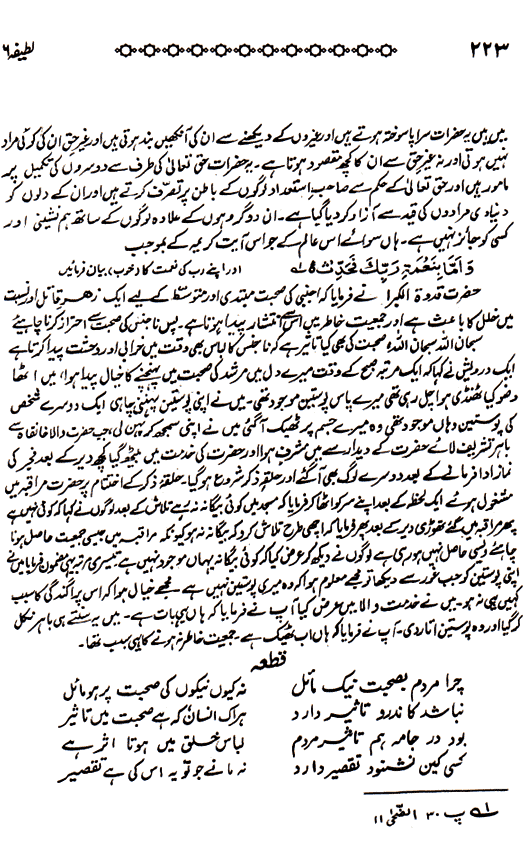 ۲۲۳ لطیفہ ۶
ہیں ہیں یہ حضرات سراپا سوختہ ہوتے ہیں اور غیروں کے دیکھنے سے ان کی آنکھیں بند ہوتی ہیں اور غیر حق ان کی کوئی مراد
نہیں ہوتی اور نہ غیر حق سے ان کا کچھ مقصود ہوتا ہے۔ یہ حضرات حق تعالیٰ کی طرف سے دوسروں کی تکمیل پر
مامور ہیں اور حق تعالیٰ کے حکم سے صاحب استعداد لوگوں کے باطن پر تصرف کرتے ہیں اور ان کے دلوں کو
دنیاوی مرادوں کی قید سے آزاد کر دیا گیا ہے۔ ان دو گروہوں کے علاوہ لوگوں کے ساتھ ہم نشینی اور
کسی کو جائز نہیں ہے۔ ہاں سوائے اس عالم کے جو اس آیت کریمہ کے بموجب
وَ اَمَّا بِنِعْمَةِ رَبِّكَ فَحَدِّثْ ۱ اور اپنے رب کی نعمت کا (خوب) بیان فرمائیں
حضرت قدوۃ الکبرا نے فرمایا کہ اجنبی کی صحبت مبتدی اور متوسط کے لیے ایک زہر قاتل اور نسبت
میں خلل کا باعث ہے اور جمعیت خاطر میں اس سے انتشار پیدا ہوتا ہے۔ پس ناجنس کی صحبت سے احتراز کرنا چاہئے
سبحان اللہ سبحان اللہ صحبت کی بھی کیا تاثیر ہے کہ ناجنس کا لباس بھی وقت میں خرابی اور وحشت پیدا کرتا ہے
ایک درویش نے کہا کہ ایک مرتبہ صبح کے وقت میرے دل میں مرشد کی صحبت میں پہنچنے کا خیال پیدا ہوا، میں اٹھا
وضو کیا ٹھنڈی ہوا چل رہی تھی میرے پاس پوستین موجود تھی۔ میں نے اپنی پوستین پہننی چاہی ایک دوسرے شخص
کی پوستین وہاں موجود تھی وہ میرے جسم پر ٹھیک آگئی میں نے اپنی سمجھ کر پہن لی، جب حضرت والا خانقاہ سے
باہر تشریف لائے حضرت کے دیدار سے میں مشرف ہوا اور حضرت کی خدمت میں بیٹھ گیا کچھ دیر کے بعد فجر کی
نماز ادا فرمانے کے بعد دوسرے لوگ بھی آگئے اور حلقہ ذکر شروع ہو گیا۔ حلقہ ذکر کے اختتام پر حضرت مراقبہ میں
مشغول ہوئے ایک لحظہ کے بعد اپنے سر کو اٹھا کر فرمایا کہ مسجد میں کوئی بیگانہ نہ ہے تلاش کے بعد لوگوں نے کہا کہ کوئی نہیں ہے
پھر مراقبہ میں گئے تھوڑی دیر کے بعد پھر فرمایا کہ اچھی طرح تلاش کرو کہ بیگانہ نہ ہو کیونکہ مراقبہ میں جیسی جمعیت حاصل ہونا
چاہئے ویسی حاصل نہیں ہو رہی ہے لوگوں نے دیکھ کر عرض کیا کہ کوئی بیگانہ یہاں موجود نہیں ہے تیسری مرتبہ یہی مضمون فرمایا میں نے
اپنی پوستین کو جب غور سے دیکھا تو مجھے معلوم ہوا کہ وہ میری پوستین نہیں ہے۔ مجھے خیال ہوا کہ اس پراگندگی کا سبب
کہیں یہی نہ ہو۔ میں نے خدمت والا میں عرض کیا آپ نے فرمایا کہ ہاں یہی بات ہے۔ میں یہ سنتے ہی باہر نکل
کر گیا اور وہ پوستین اتار دی۔ آپ نے فرمایا کہ ہاں اب ٹھیک ہے۔ جمعیت خاطر نہ ہونے کا یہی سبب تھا۔
قطعہ
چرا مردم بصحبت نیک مائل نہ کیوں نیکوں کی صحبت پر ہو مائل
نباشد کاندرو تاثیر دارد ہر اک انساں کہ ہے صحبت میں تاثیر
بود در جامہ ہم تاثیر مردم لباس خلق میں ہوتا اثر ہے
کسی کین نشنود تقصیر دارد نہ مانے جو تو یہ اس کی ہے تقصیر
۱ پ ۳۰ الضحیٰ ۱۱